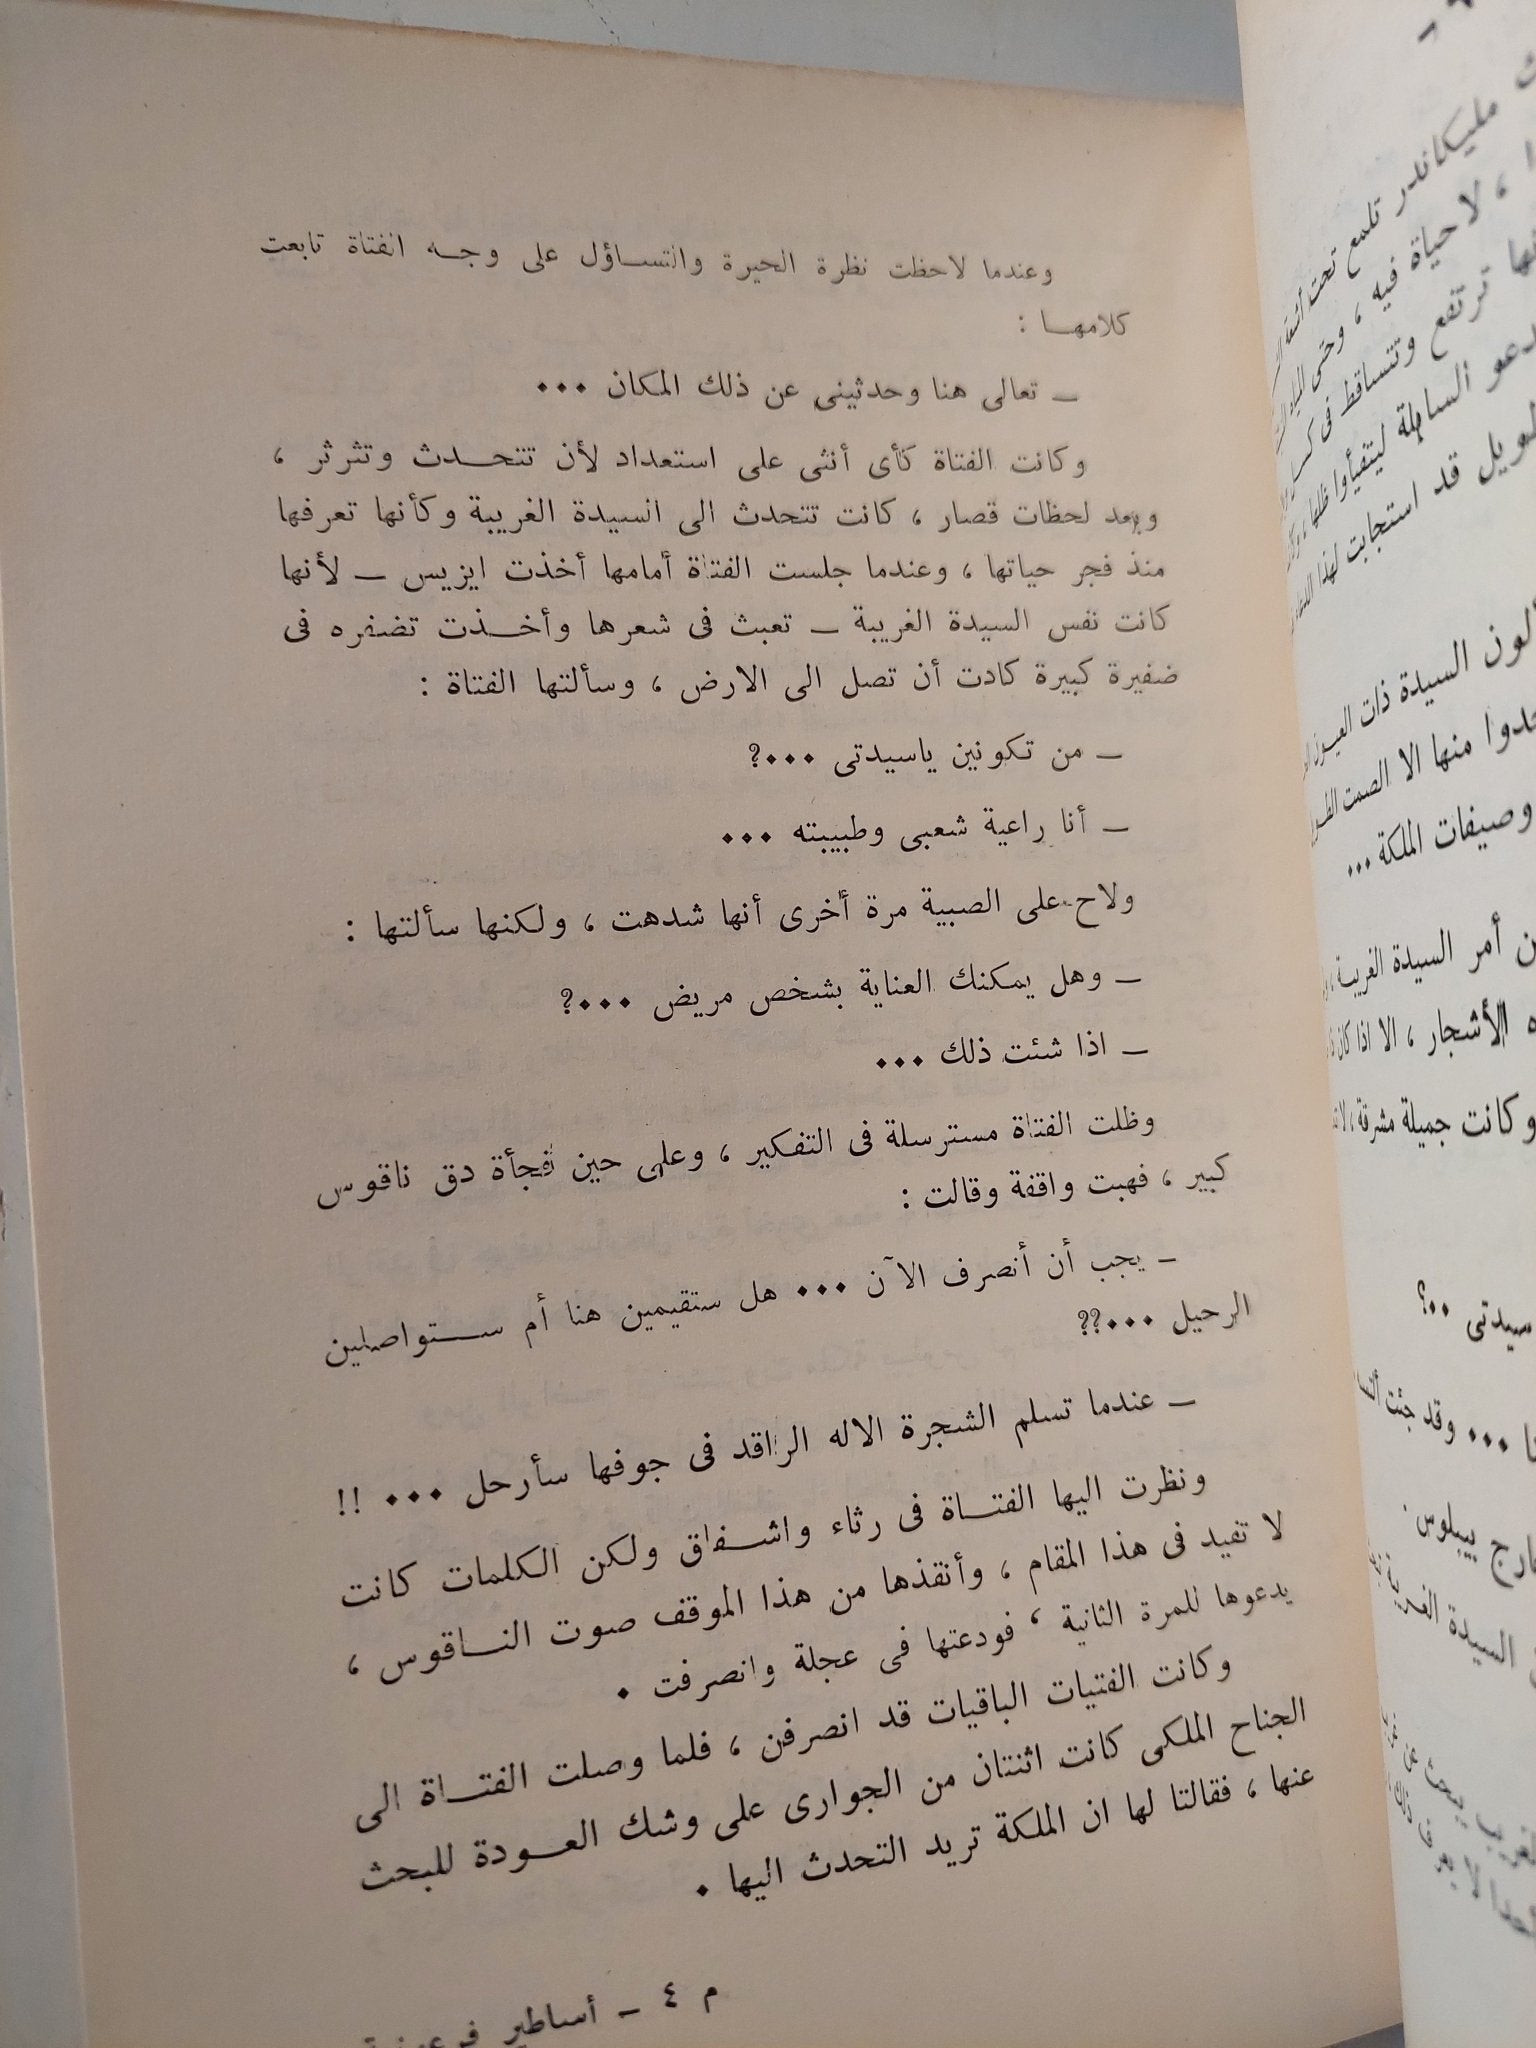 وعندما لاحظت نظرة الحيرة والتساؤل على وجه الفتاة تابعت
كلامها :
ـ تعالى هنا وحدثينى عن ذلك المكان ...
وكانت الفتاة كأى أنثى على استعداد لأن تتحدث وتثرثر ،
وبعد لحظات قصار ، كانت تتحدث الى السيدة الغريبة وكأنها تعرفها
منذ فجر حياتها ، وعندما جلست الفتاة أمامها أخذت ايزيس ـ لأنها
كانت نفس السيدة الغريبة ـ تعبث فى شعرها وأخذت تضفره فى
ضفيرة كبيرة كادت أن تصل الى الارض ، وسألتها الفتاة :
ـ من تكونين ياسيدتى ...؟
ـ أنا راعية شعبى وطبيبته ...
ولاح على الصبية مرة أخرى أنها شدهت ، ولكنها سألتها :
ـ وهل يمكنك العناية بشخص مريض ...؟
ـ اذا شئت ذلك ...
وظلت الفتاة مسترسلة فى التفكير ، وعلى حين فجأة دق ناقوس
كبير ، فهبت واقفة وقالت :
ـ يجب أن أنصرف الآن ... هل ستقيمين هنا أم ستواصلين
الرحيل ...؟؟
ـ عندما تسلم الشجرة الاله الراقد فى جوفها سأرحل ... !!
ونظرت اليها الفتاة فى رثاء واشفاق ولكن الكلمات كانت
لا تفيد فى هذا المقام ، وأنقذها من هذا الموقف صوت الناقوس ،
يدعوها للمرة الثانية ، فودعتها فى عجلة وانصرفت .
وكانت الفتيات الباقيات قد انصرفن ، فلما وصلت الفتاة الى
الجناح الملكى كانت اثنتان من الجوارى على وشك العودة للبحث
عنها ، فقالتا لها ان الملكة تريد التحدث اليها .
م ٤ ـ أساطير
مليكاندر تلمع تحت
، لا حياة فيه ، وحتى
ترتفع وتتساقط فى
السابلة ليتفيأوا ظلها
قد استجابت لهذا
السيدة ذات العيون
منها الا الصمت
وصيفات الملكة ...
أمر السيدة الغريبة ،
الأشجار ، الا اذا كان
وكانت جميلة مشرقة ،
سيدتى ..؟
... وقد جئت
بيبلوس
السيدة